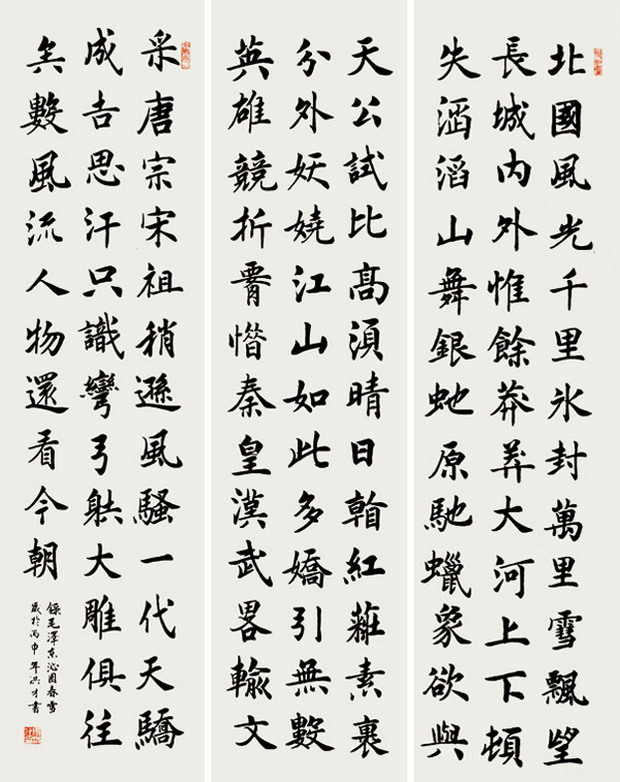 北國風光千里氷封萬里雪飄望
長城内外惟餘莽莽大河上下頓
失滔滔山舞銀虵原馳蠟象欲與
天公試比高湏晴日紅素裹
分外妖嬈江山如此多嬌引無數
英雄競折惜秦皇漢武畧輸文
采唐宗宋祖稍遜風騷一代天驕
成吉思汗只識彎弓大雕俱往
矣數風流人物還看今朝
錄毛澤東沁園春雪
歲於丙申年洪才書